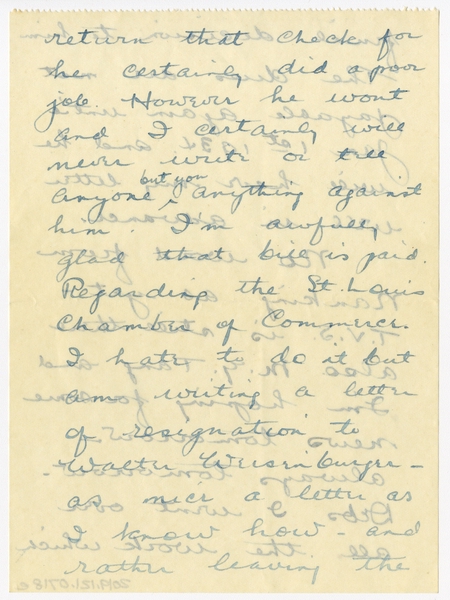 return that check for
he certainly did a poor
job. However he wont
and I certainly will
never write or tell
but you
anyone, anything against
him. I'm awfully
glad that bill is paid.
Regarding the St. Louis
Chamber of Commerce.
I hate to do it but
am writing a letter
of resignation to
Walter Weisenburger -
as nice a letter as
I know how - and
rather leaving the
2019.121.0718c